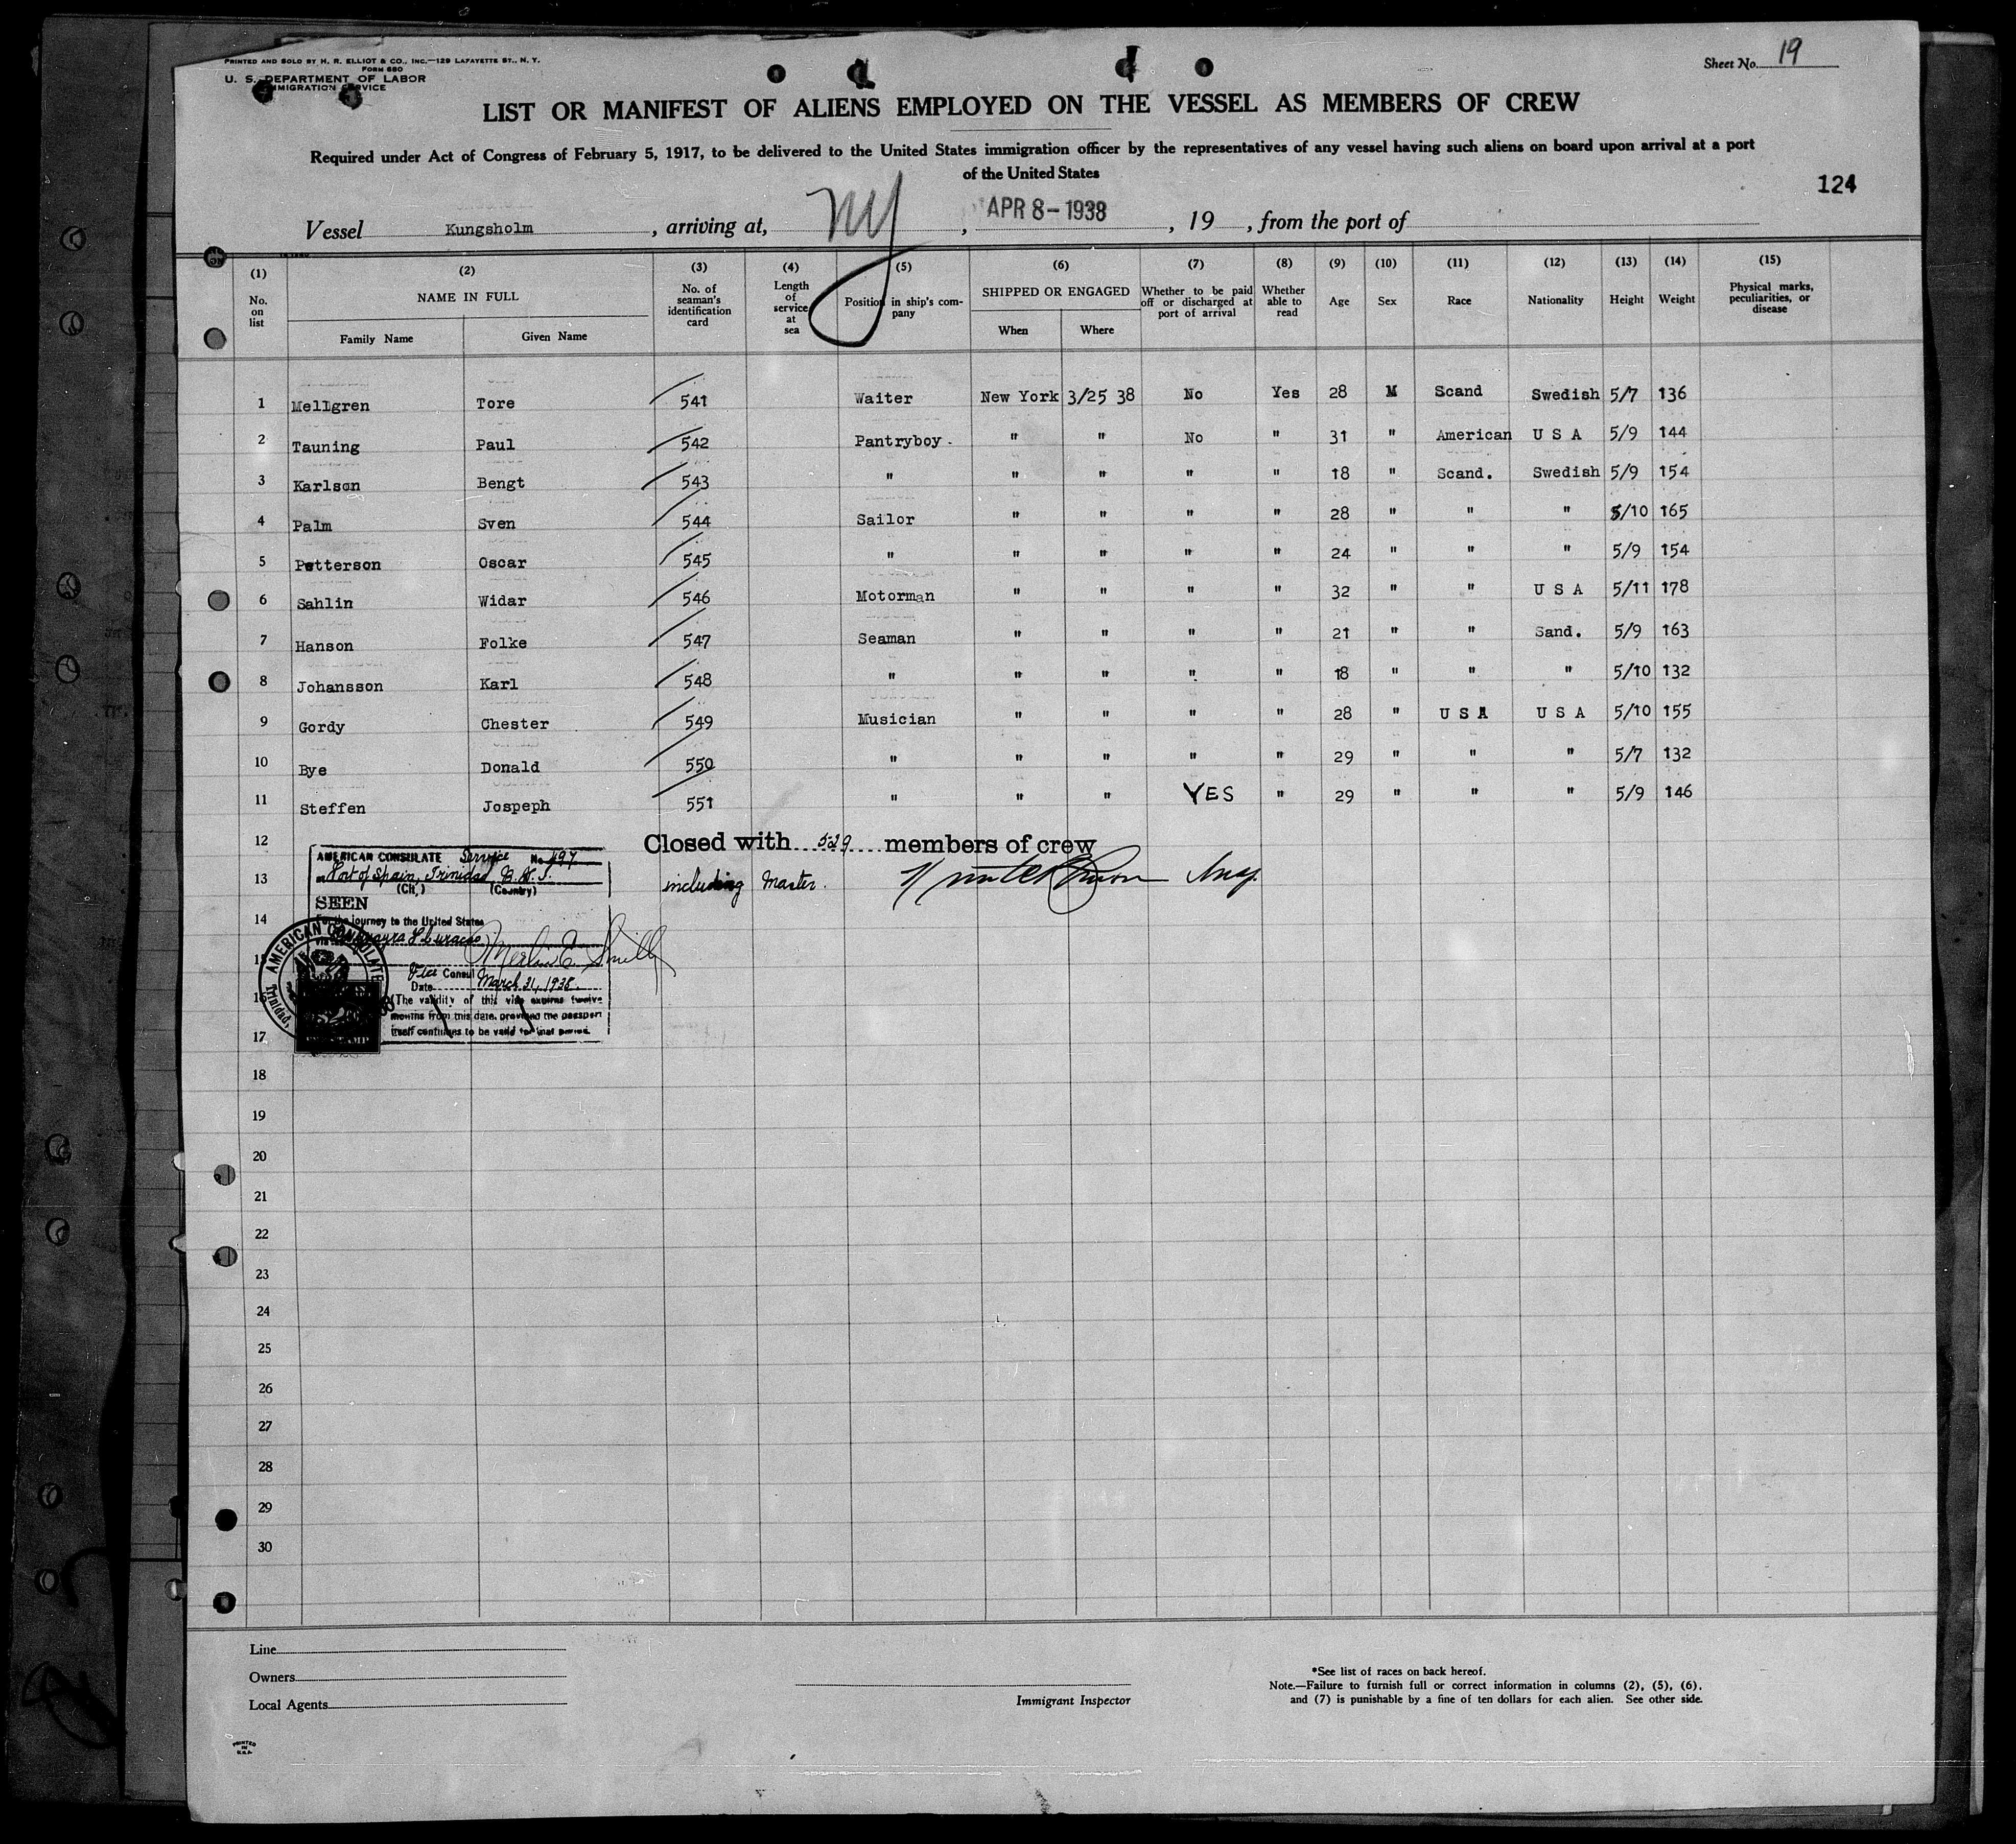 PRINTED AND SOLD BY H. R. ELLIOT & CO., INC.—129 LAFAYETTE ST., N. Y.
FORM 680
U. S. DEPARTMENT OF LABOR
IMMIGRATION SERVICE
Sheet No. 19
LIST OR MANIFEST OF ALIENS EMPLOYED ON THE VESSEL AS MEMBERS OF CREW
Required under Act of Congress of February 5, 1917, to be delivered to the United States immigration officer by the representatives of any vessel having such aliens on board upon arrival at a port
of the United States
124
Vessel Kungsholm, arriving at, NY, APR 8-1938, 19 , from the port of
(1) (2) (3) (4) (5) (6) (7) (8) (9) (10) (11) (12) (13) (14) (15)
No. on list NAME IN FULL No. of seaman's identification card Length of service at sea Position in ship's company SHIPPED OR ENGAGED Whether to be paid off or discharged at port of arrival Whether able to read Age Sex Race Nationality Height Weight Physical marks, peculiarities, or disease
Family Name Given Name When Where
1 Mellgren Tore 541 Waiter New York 3/25 38 No Yes 28 M Scand Swedish 5/7 136
2 Tauning Paul 542 Pantryboy. " " No " 31 " American U S A 5/9 144
3 Karlson Bengt 543 " " " " " 18 " Scand. Swedish 5/9 154
4 Palm Sven 544 Sailor " " " " 28 " " " 5/10 165
5 Petterson Oscar 545 " " " " " 24 " " " 5/9 154
6 Sahlin Widar 546 Motorman " " " " 32 " " U S A 5/11 178
7 Hanson Folke 547 Seaman " " " " 21 " " Sand. 5/9 163
8 Johansson Karl 548 " " " " " 18 " " " 5/10 132
9 Gordy Chester 549 Musician " " " " 28 " U S A U S A 5/10 155
10 Bye Donald 550 " " " " " 29 " " " 5/7 132
11 Steffen Jospeph 551 " " " YES " 29 " " " 5/9 146
12 Closed with 529 members of crew
13 including Master.
AMERICAN CONSULATE Service No. 497
Port of Spain, Trinidad, B.W.I.
(City) (Country)
SEEN
For the journey to the United States
14
Merlin E. Smith
15
Vice Consul
Date March 31, 1938.
AMERICAN CONSULATE
Trinidad,
16
The validity of this visa expires twelve
months from this date, provided the passport
itself continues to be valid for that period.
17
18
19
20
21
22
23
24
25
26
27
28
29
30
Line
Owners
Local Agents
Immigrant Inspector
*See list of races on back hereof.
Note.—Failure to furnish full or correct information in columns (2), (5), (6),
and (7) is punishable by a fine of ten dollars for each alien. See other side.
PRINTED
IN
U.S.A.